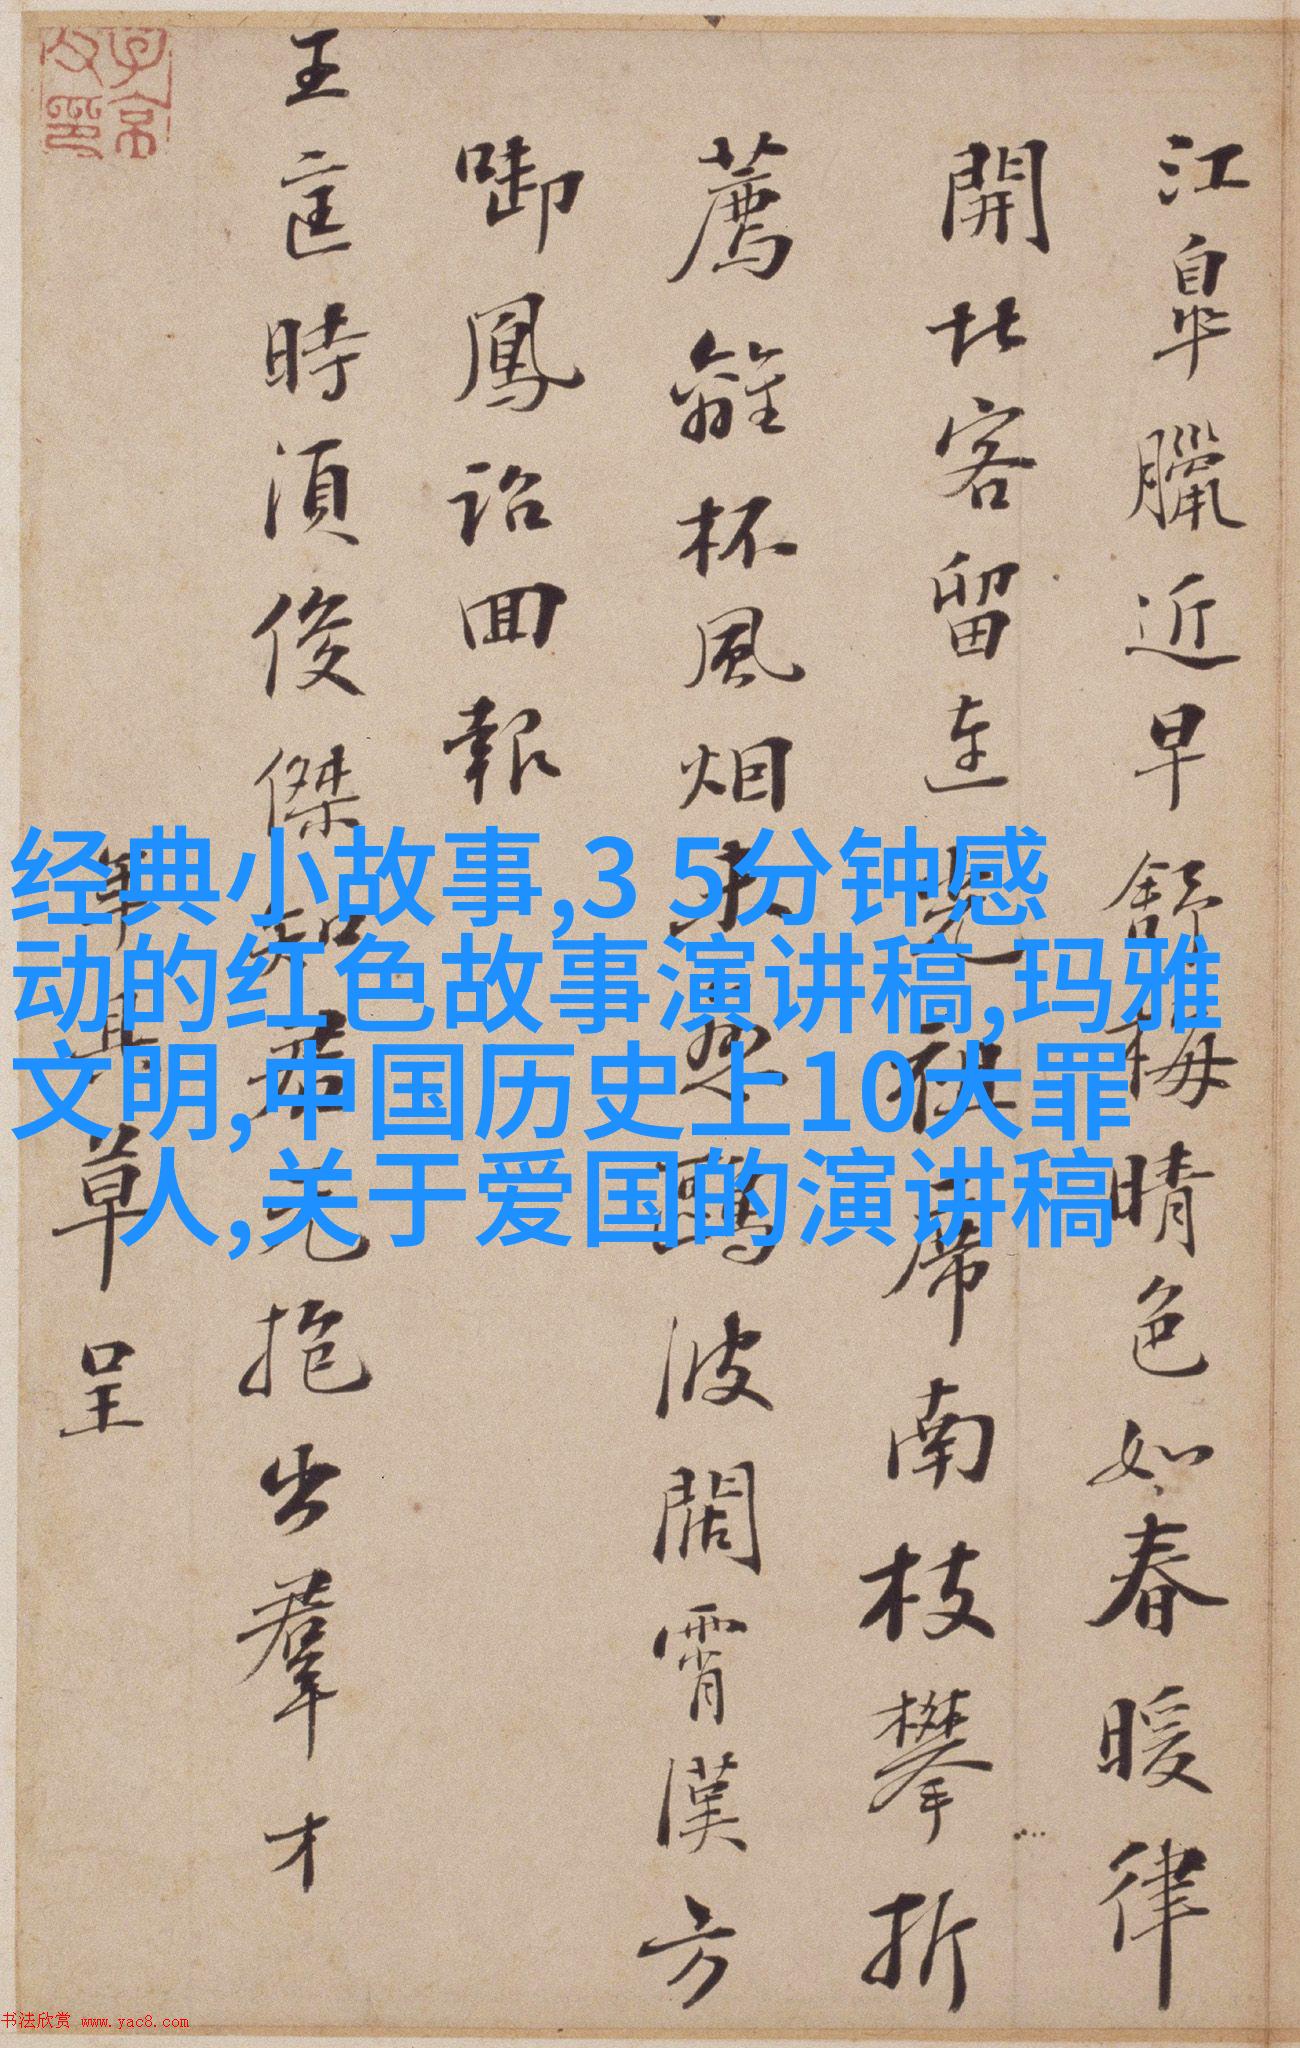 江皐臘近早舒梅晴色如春暖律
開北客留連
席南枝攀折
薦離杯風烟
波闊霄漢方
啣鳳詔回報
王
時須俊傑知君
抱出羣才
草呈
经典小故事,3 5分钟感
动的红色故事演讲稿,玛雅
文明,中国历史上10大罪
人,关于爱国的演讲稿
书法欣赏 www.yac8.com